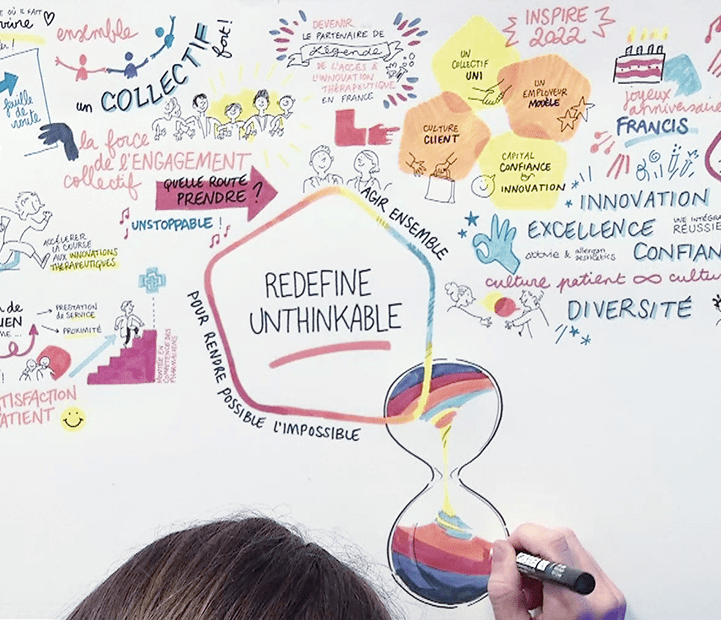 OÙ IL FAIT
vivre
ensemble
un COLLECTIF
fort!
feuille
de
route
la force
de l'ENGAGEMENT
collectif
QUELLE ROUTE
PRENDRE ?
UNSTOPPABLE !
ACCÉLÉRER
LA COURSE
AUX INNOVATIONS
THÉRAPEUTIQUES
PRESTATION
DE SERVICE
PROXIMITÉ
MONTÉE EN
COMPÉTENCE DES
PHARMACIENS
DEVENIR
LE PARTENAIRE DE
Légende
DE L'ACCÈS &
L'INNOVATION
THÉRAPEUTIQUE
EN FRANCE
UN
COLLECTIF
UNI
UN
EMPLOYEUR
MODÈLE
CULTURE
CLIENT
CAPITAL
CONFIANCE
INNOVATION
INSPIRE
2022
joyeux
anniversaire
FRANCIS
INNOVATION
EXCELLENCE
abbvie & allergan
aesthetics
culture patient ∞
DIVERSITÉ
AGIR ENSEMBLE
REDEFINE
UNTHINKABLE
POUR RENDRE POSSIBLE L'IMPOSSIBLE